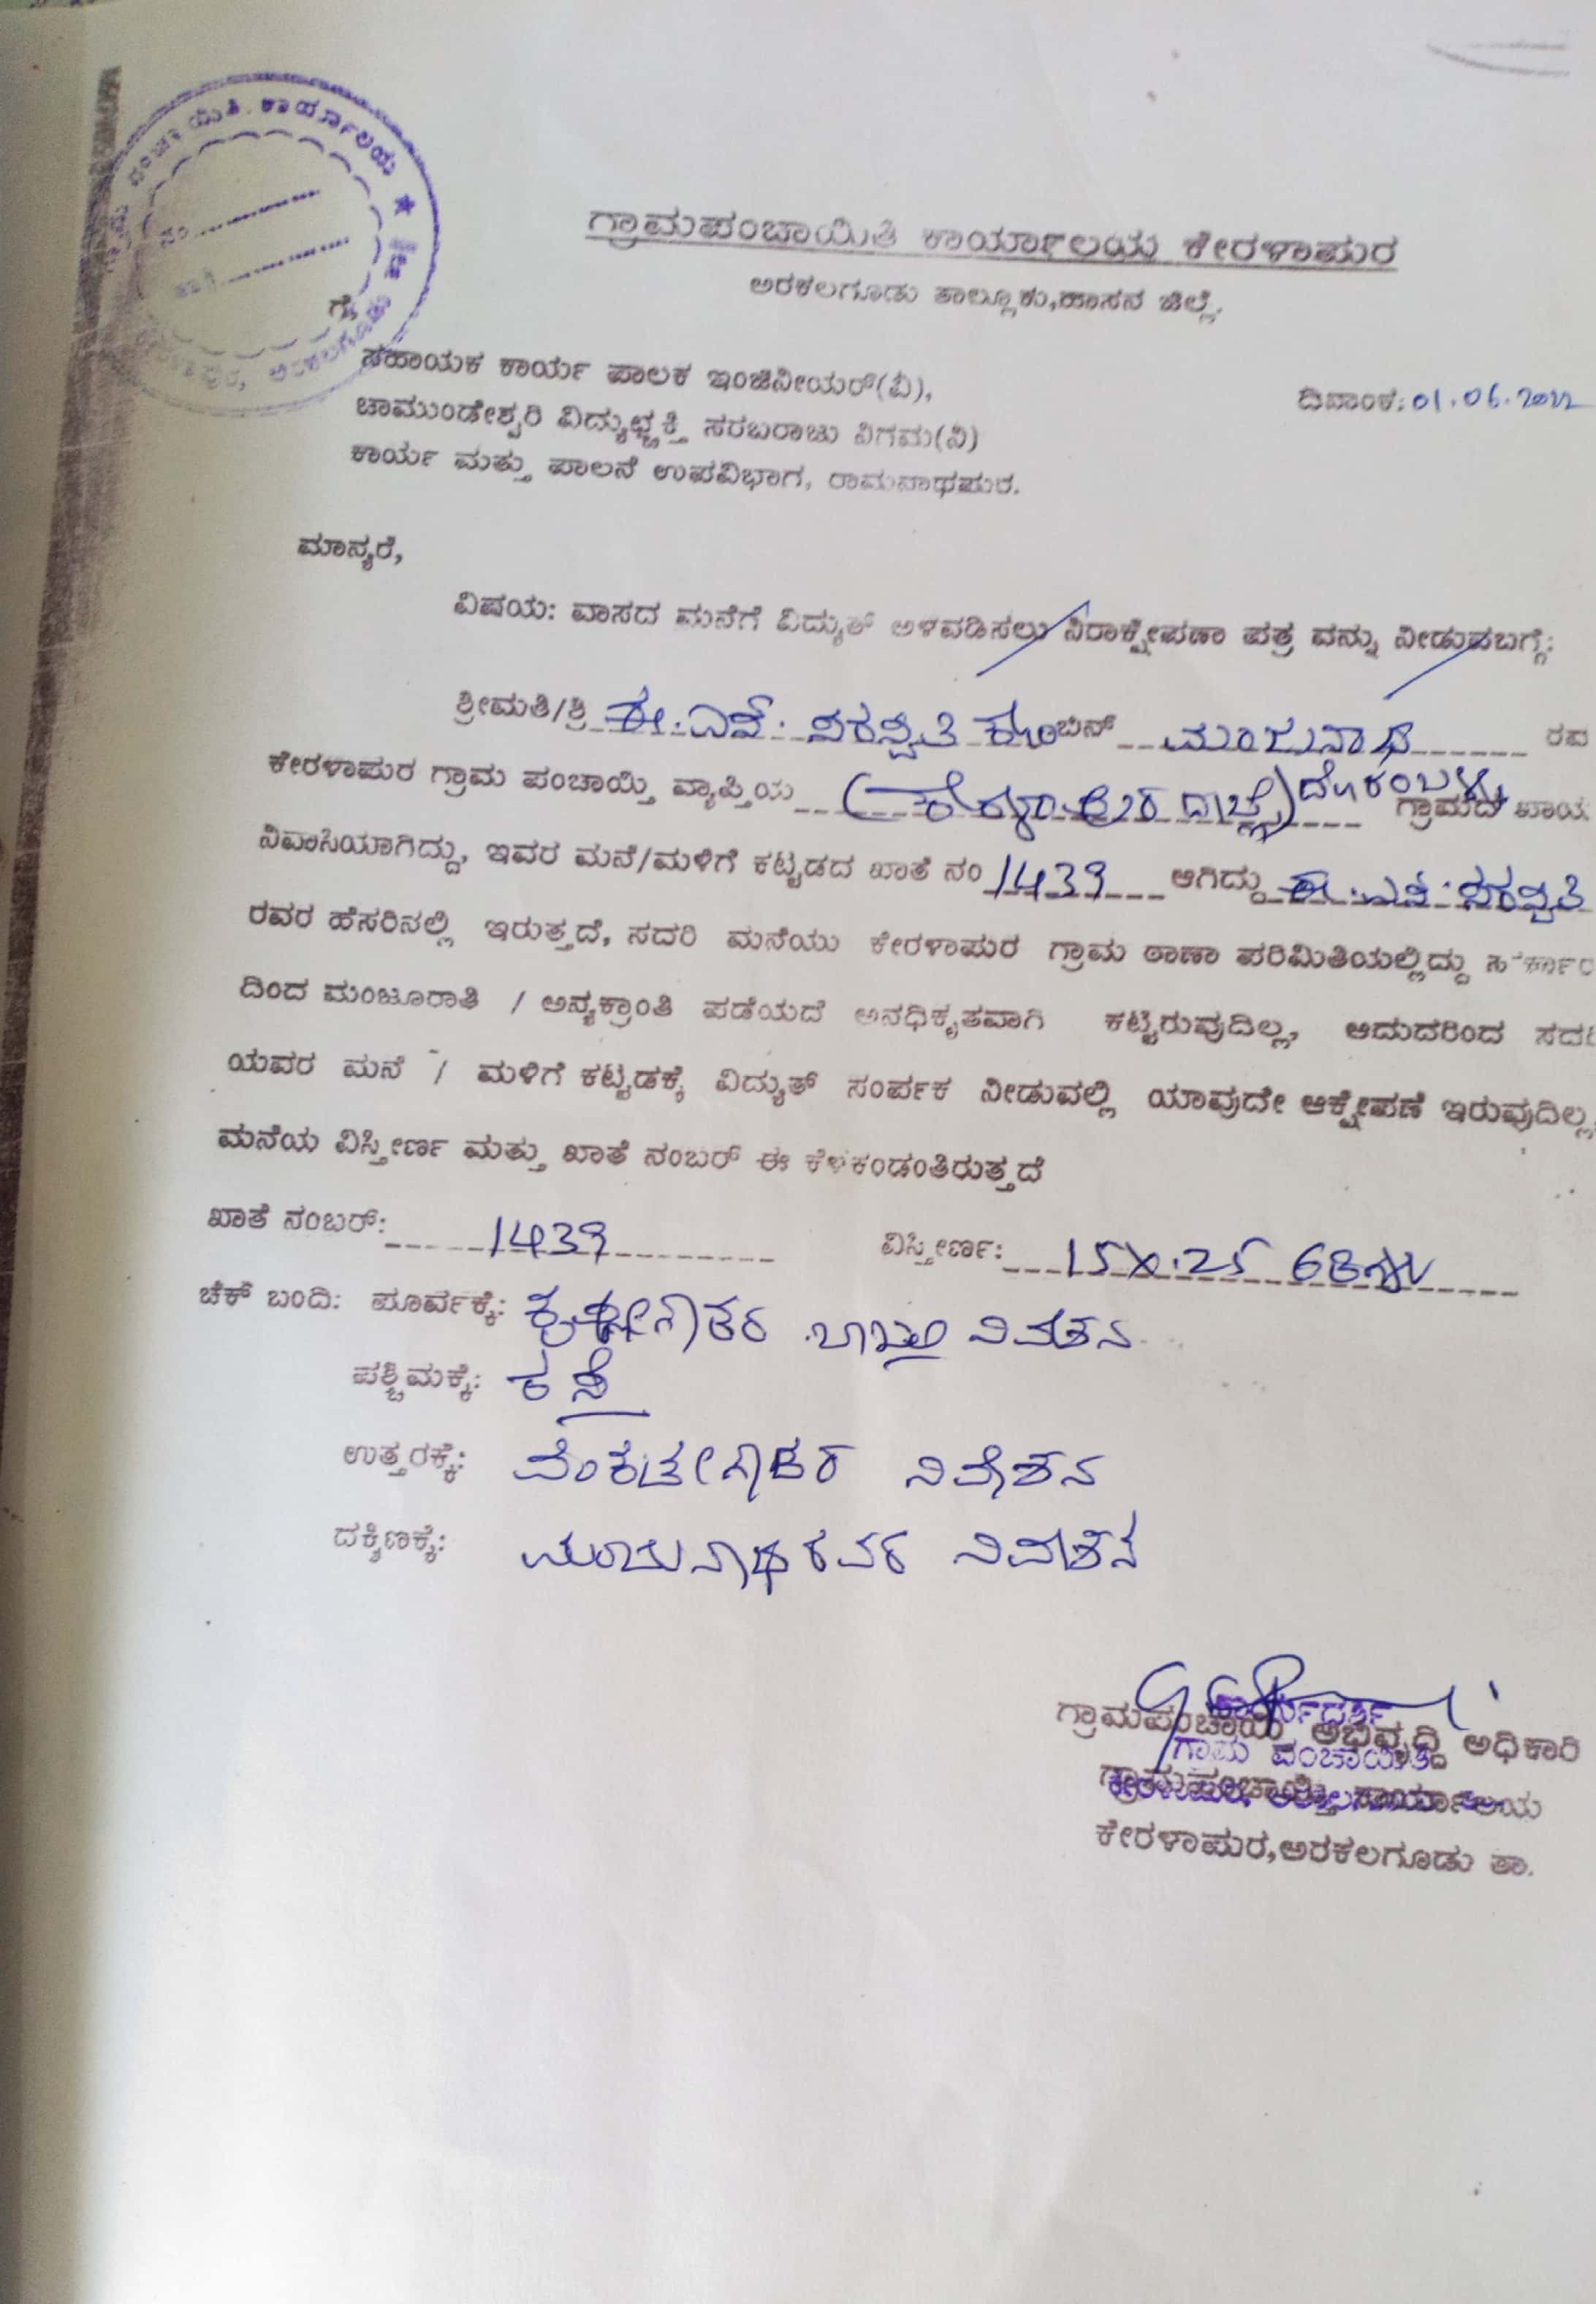 ಕಾರ್ಯಾಲಯ ★
ಗ್ರಾಮಪಂಚಾಯಿತಿ ಕಾರ್ಯಾಲಯ ಕೇರಳಾಪುರ
ಅರಕಲಗೂಡು ತಾಲ್ಲೂಕು,ಹಾಸನ ಜಿಲ್ಲೆ.
ಗೆ,
ಸಹಾಯಕ ಕಾರ್ಯ ಪಾಲಕ ಇಂಜಿನೀಯರ್(ವಿ),
ದಿನಾಂಕ: 01.06.2022
ಚಾಮುಂಡೇಶ್ವರಿ ವಿದ್ಯುಚ್ಛಕ್ತಿ ಸರಬರಾಜು ನಿಗಮ(ನಿ)
ಕಾರ್ಯ ಮತ್ತು ಪಾಲನೆ ಉಪವಿಭಾಗ, ರಾಮನಾಥಪುರ.
ಮಾನ್ಯರೆ,
ವಿಷಯ: ವಾಸದ ಮನೆಗೆ ವಿದ್ಯುತ್ ಅಳವಡಿಸಲು ನಿರಾಕ್ಷೇಪಣಾ ಪತ್ರ ವನ್ನು ನೀಡುವಬಗ್ಗೆ:
ಶ್ರೀಮತಿ/ಶ್ರಿ ಕೆ.ಎನ್. ಸರಸ್ವತಿ ಕೋಂ ಬಿನ್ ಮಂಜುನಾಥ ರವ
ಕೇರಳಾಪುರ ಗ್ರಾಮ ಪಂಚಾಯ್ತಿ ವ್ಯಾಪ್ತಿಯ ಗ್ರಾಮದ ಖಾಯಂ
ನಿವಾಸಿಯಾಗಿದ್ದು, ಇವರ ಮನೆ/ಮಳಿಗೆ ಕಟ್ಟಡದ ಖಾತೆ ನಂ 1439 ಆಗಿದ್ದು ಕೆ.ಎನ್. ಸರಸ್ವತಿ
ರವರ ಹೆಸರಿನಲ್ಲಿ ಇರುತ್ತದೆ, ಸದರಿ ಮನೆಯು ಕೇರಳಾಪುರ ಗ್ರಾಮ ಠಾಣಾ ಪರಿಮಿತಿಯಲ್ಲಿದ್ದು ಸರ್ಕಾರ
ದಿಂದ ಮಂಜೂರಾತಿ / ಅನ್ಯಕ್ರಾಂತಿ ಪಡೆಯದೆ ಅನಧಿಕೃತವಾಗಿ ಕಟ್ಟಿರುವುದಿಲ್ಲ, ಆದುದರಿಂದ ಸದರಿ
ಯವರ ಮನೆ / ಮಳಿಗೆ ಕಟ್ಟಡಕ್ಕೆ ವಿದ್ಯುತ್ ಸಂರ್ಪಕ ನೀಡುವಲ್ಲಿ ಯಾವುದೇ ಆಕ್ಷೇಪಣೆ ಇರುವುದಿಲ್ಲ,
ಮನೆಯ ವಿಸ್ತೀರ್ಣ ಮತ್ತು ಖಾತೆ ನಂಬರ್ ಈ ಕೆಳಕಂಡಂತಿರುತ್ತದೆ
ಖಾತೆ ನಂಬರ್: 1439 ವಿಸ್ತೀರ್ಣ: 15X.25
ಚೆಕ್ ಬಂದಿ: ಪೂರ್ವಕ್ಕೆ: ಕೃಷ್ಣೇಗೌಡರ ಬಾಬ್ತು ನಿವೇಶನ
ಪಶ್ಚಿಮಕ್ಕೆ: ರಸ್ತೆ
ಉತ್ತರಕ್ಕೆ: ವೆಂಕಟೇಗೌಡರ ನಿವೇಶನ
ದಕ್ಷಿಣಕ್ಕೆ: ಮಂಜುನಾಥರವರ ನಿವೇಶನ
ಗ್ರಾಮಪಂಚಾಯ್ತಿ ಅಭಿವೃದ್ಧಿ ಅಧಿಕಾರಿ
ಕಾರ್ಯದರ್ಶಿ
ಗ್ರಾಮ ಪಂಚಾಯಿತಿ
ಗ್ರಾಮಪಂಚಾಯ್ತಿ ಕಾರ್ಯಾಲಯ
ಕೇರಳಾಪುರ,ಅರಕಲಗೂಡು ತಾ.